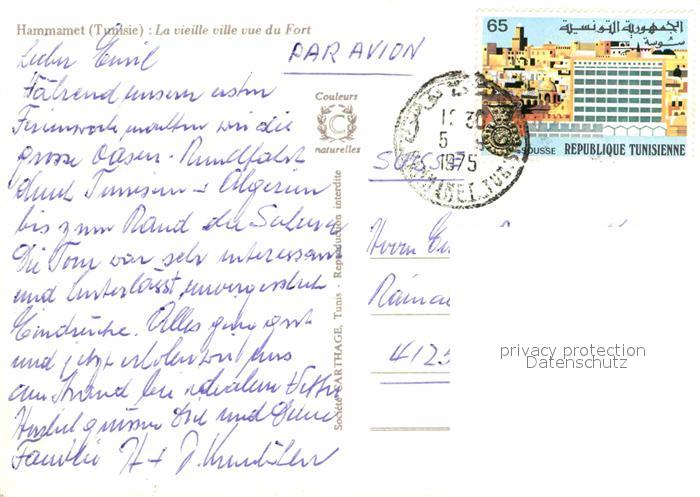 Hammamet (Tunisie) : La vieille ville vue du Fort
Lieber Emil
PAR AVION
Während unserer ersten
Ferienwoche machten wir die
grosse Oasen-Rundfahrt
durch Tunesien + Algerien
bis zum Rand der Sahara
Die Tour war sehr interessant
und hinterlässt unvergessliche
Eindrücke. Alles ging gut
und jetzt erholen wir uns
am Strand bei idealem Wetter
Herzlich grüssen Dich und Deine
Familie H + D.
Couleurs
C
naturelles
Société CARTHAGE, Tunis - Reproduction interdite
65
الجمهورية التونسية
سوسة
SOUSSE REPUBLIQUE TUNISIENNE
1975
SUISSE
Herrn
4125
privacy protection
Datenschutz